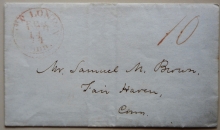 10
Mr. Samuel M. Brown,
Fair Haven,
Conn